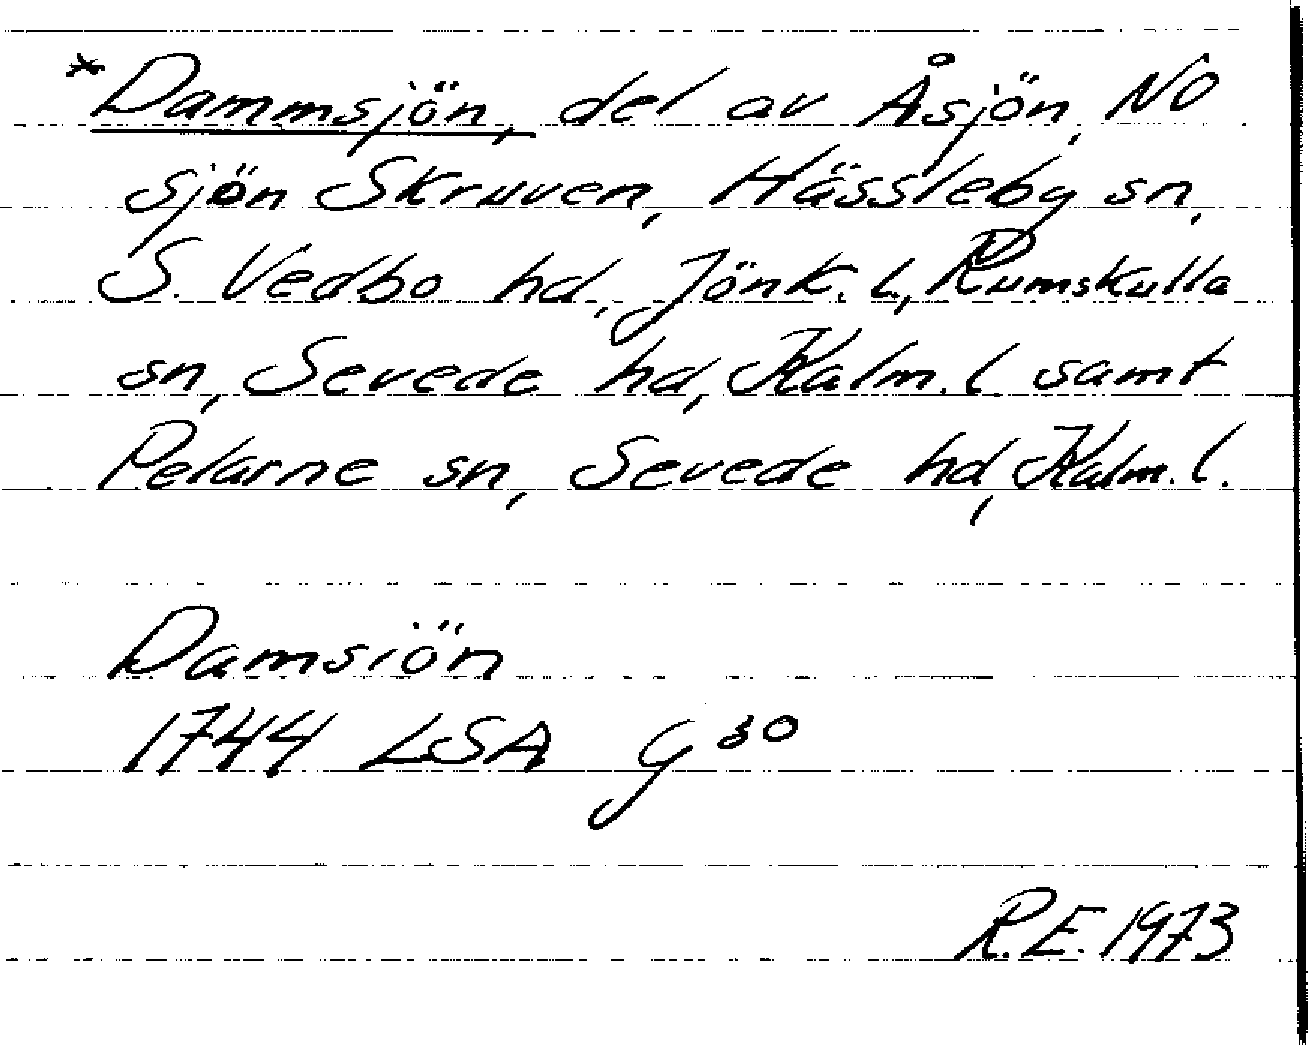 *Dammsjön, del av Åsjön, NO
sjön Skruven, Hässleby sn,
S. Vedbo hd, Jönk. l., Rumskulla
sn, Sevede hd, Kalm. l samt
Pelarne sn, Sevede hd, Kalm. l.
Damsiön
1744 LSA G 30
R.E. 1973